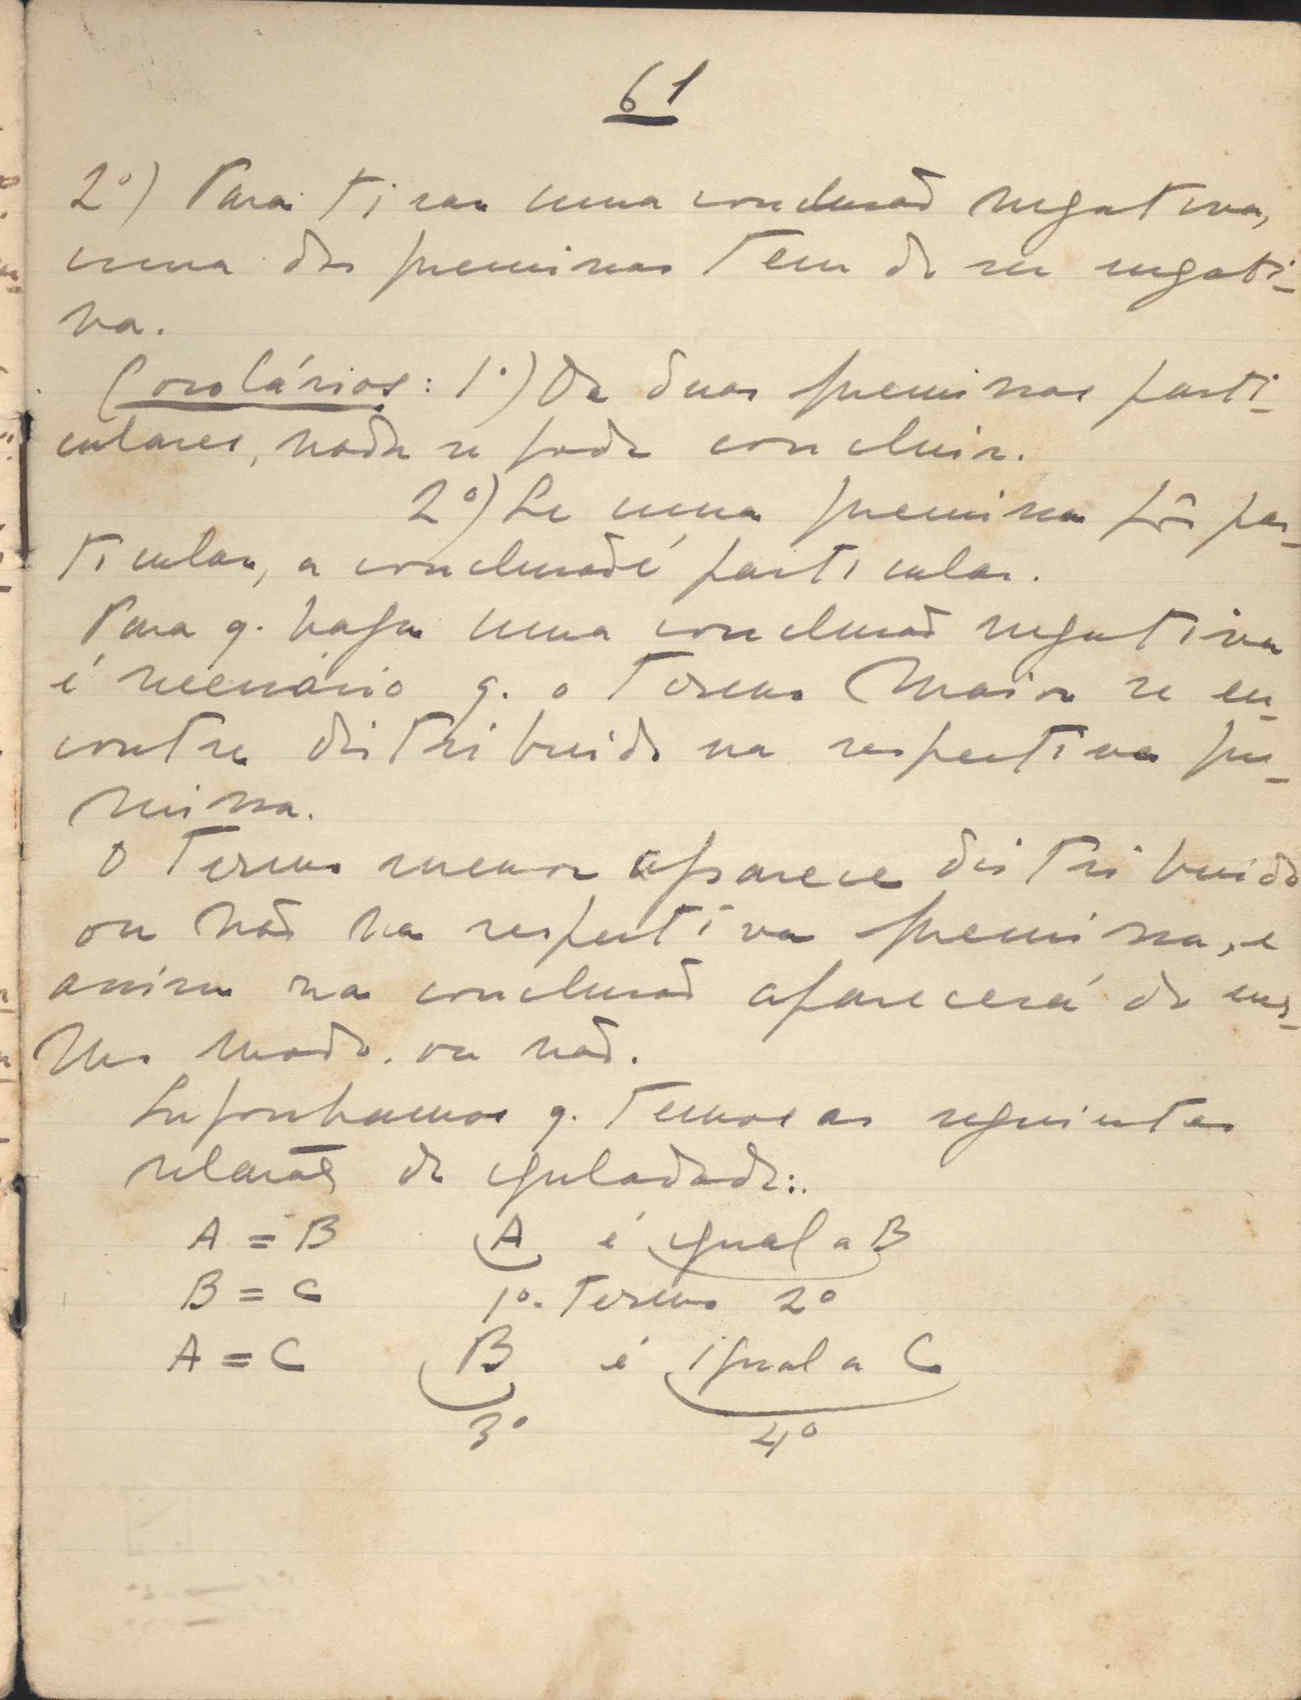 61
2º) Para tirar uma conclusão negativa,
uma das premissas tem de ser negati-
va.
Corolários: 1º) De duas premissas parti-
culares, nada se pode concluir.
2º) Se uma premissa fôr par-
ticular, a conclusão é particular.
Para q. haja uma conclusão negativa
é necessário q. o termo maior se en-
contre distribuido na respectiva pre-
missa.
O termo menor aparece distribuido
ou não na respectiva premissa, e
assim na conclusão aparecerá do mes-
mo modo. ou não.
Suponhamos q. temos as seguintes
relações de igualdade:
A = B A é igual a B
B = C 1º. termo 2º
A = C B é igual a C
3º 4º